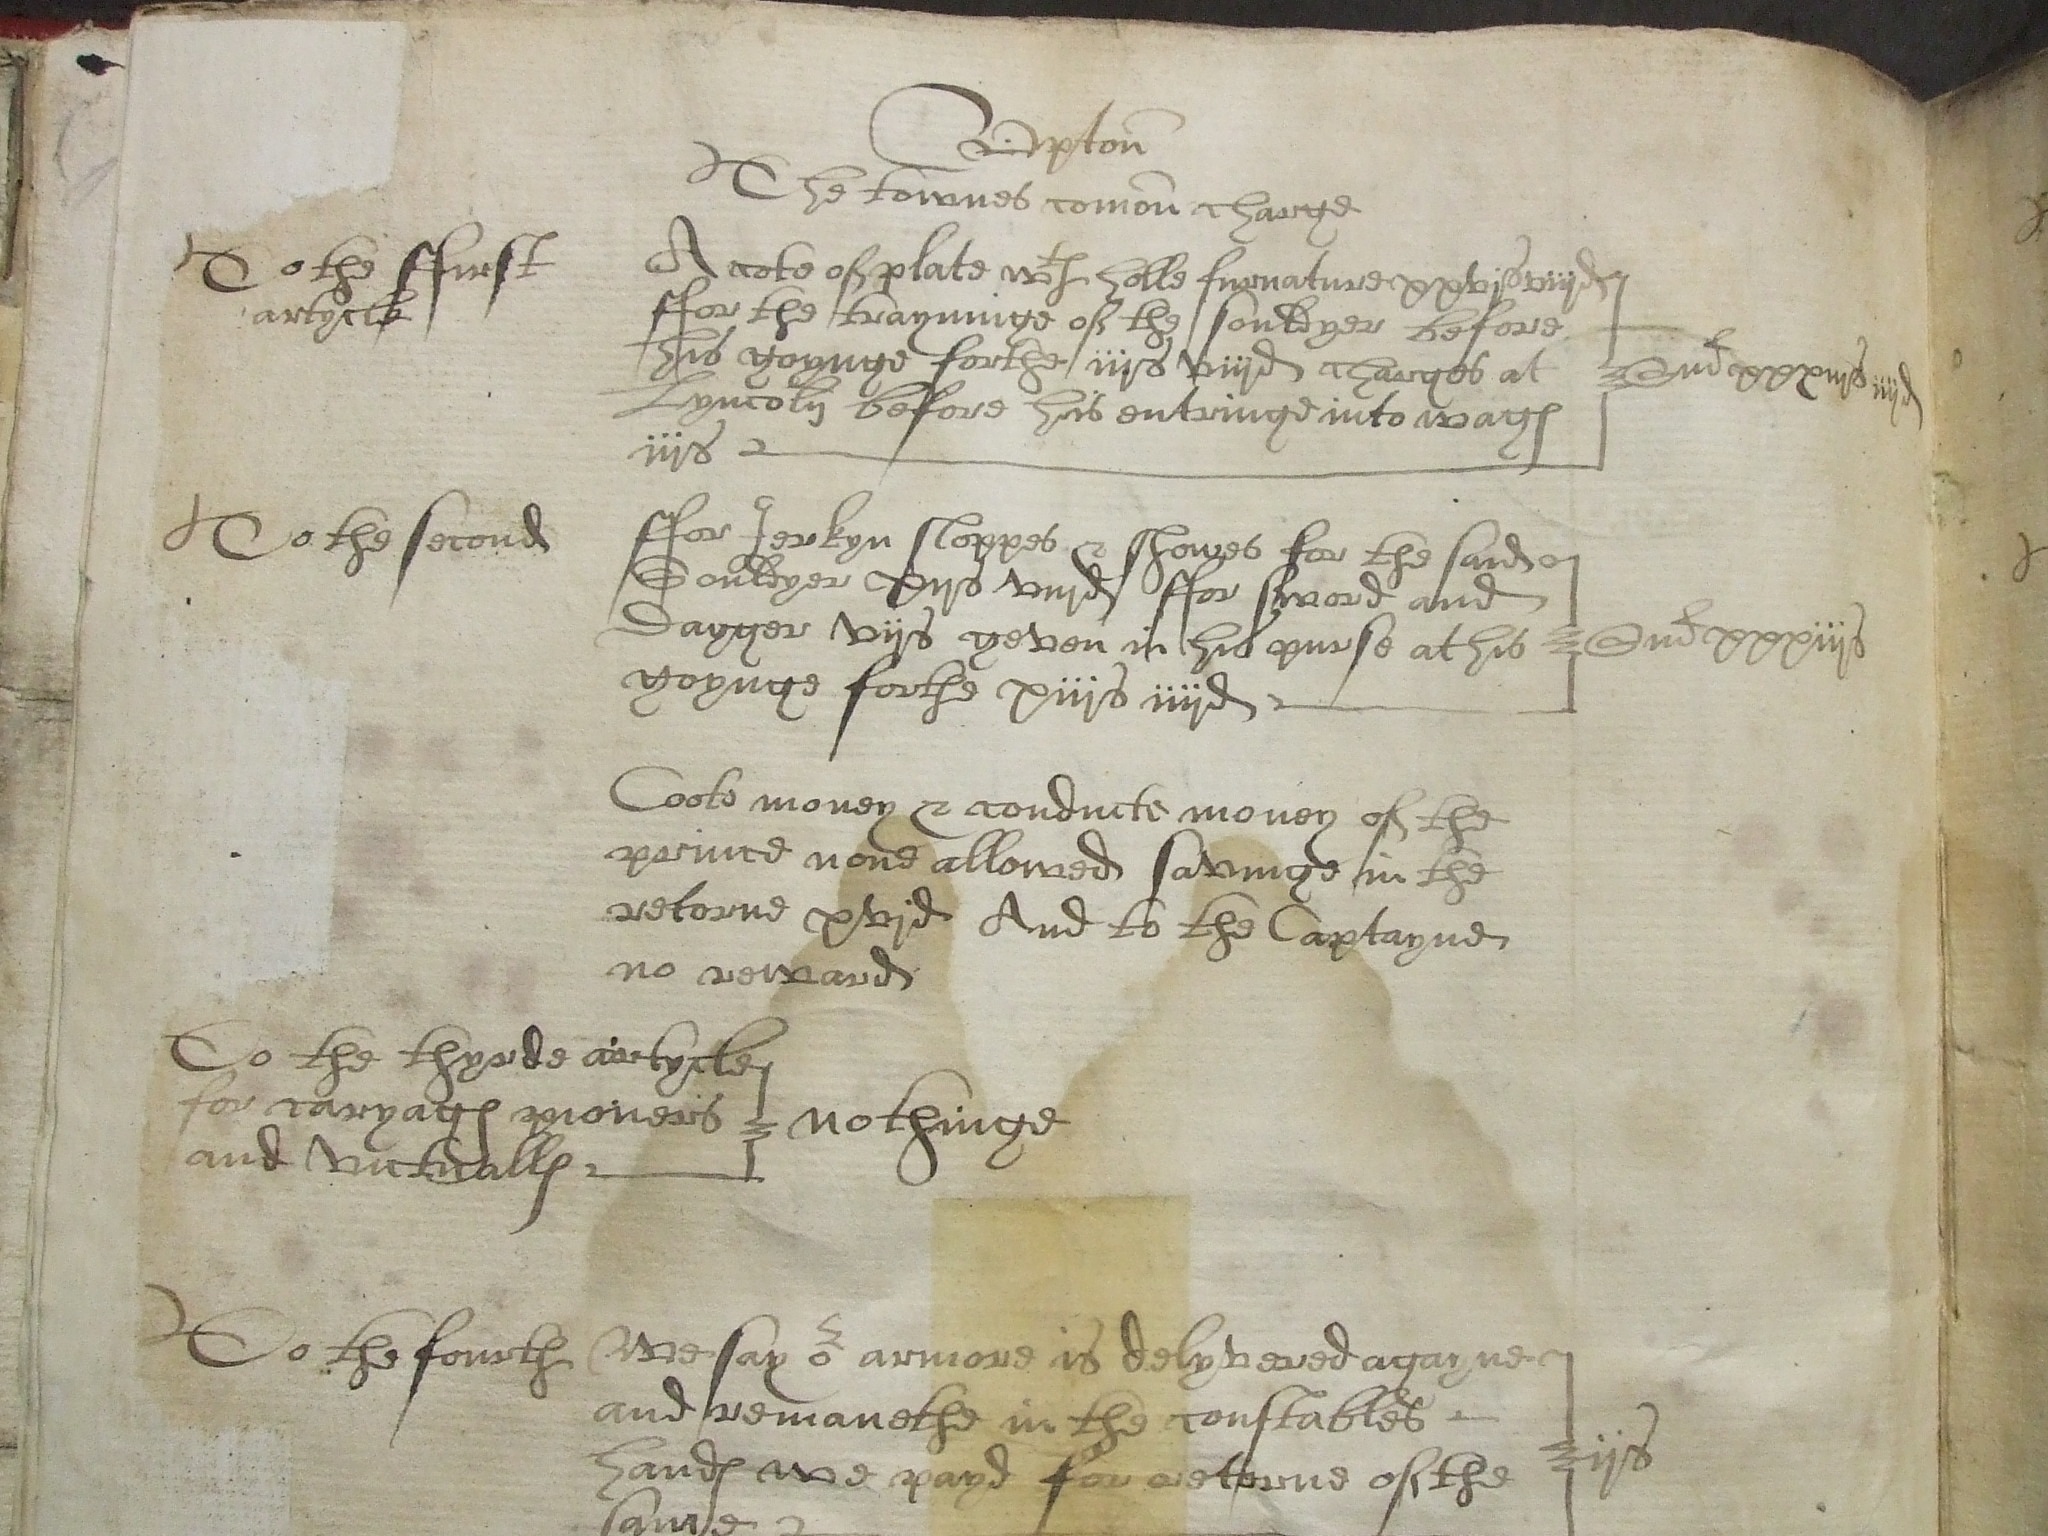 Upton
The townes comon charge
To the ffurst
artycle
A cote of plate wth holle furnature xxvjs viijd
ffor the trayninge of the souldyer before
his goynge forthe iijs viijd charges at
Lyncoln before his entringe into wages
iijs
Sm xxxiijs iiijd
To the second
ffor Jerkyn sloppes & showes for the said
Souldyer xijs viijd ffor sword and
Dagger vijs geven in his purse at his
goynge forthe xiijs iiijd
Sm xxxiijs
Coote money & conducte money of the
prince none allowed savinge in the
retorne xvjd And to the Captayne
no reward
To the thyrde artycle
for caryages pioners
and victualles
nothinge
To the fourth
We say or armore is delyvered agayne
and remanethe in the constables
handes we payd for retorne of the
same
ijs